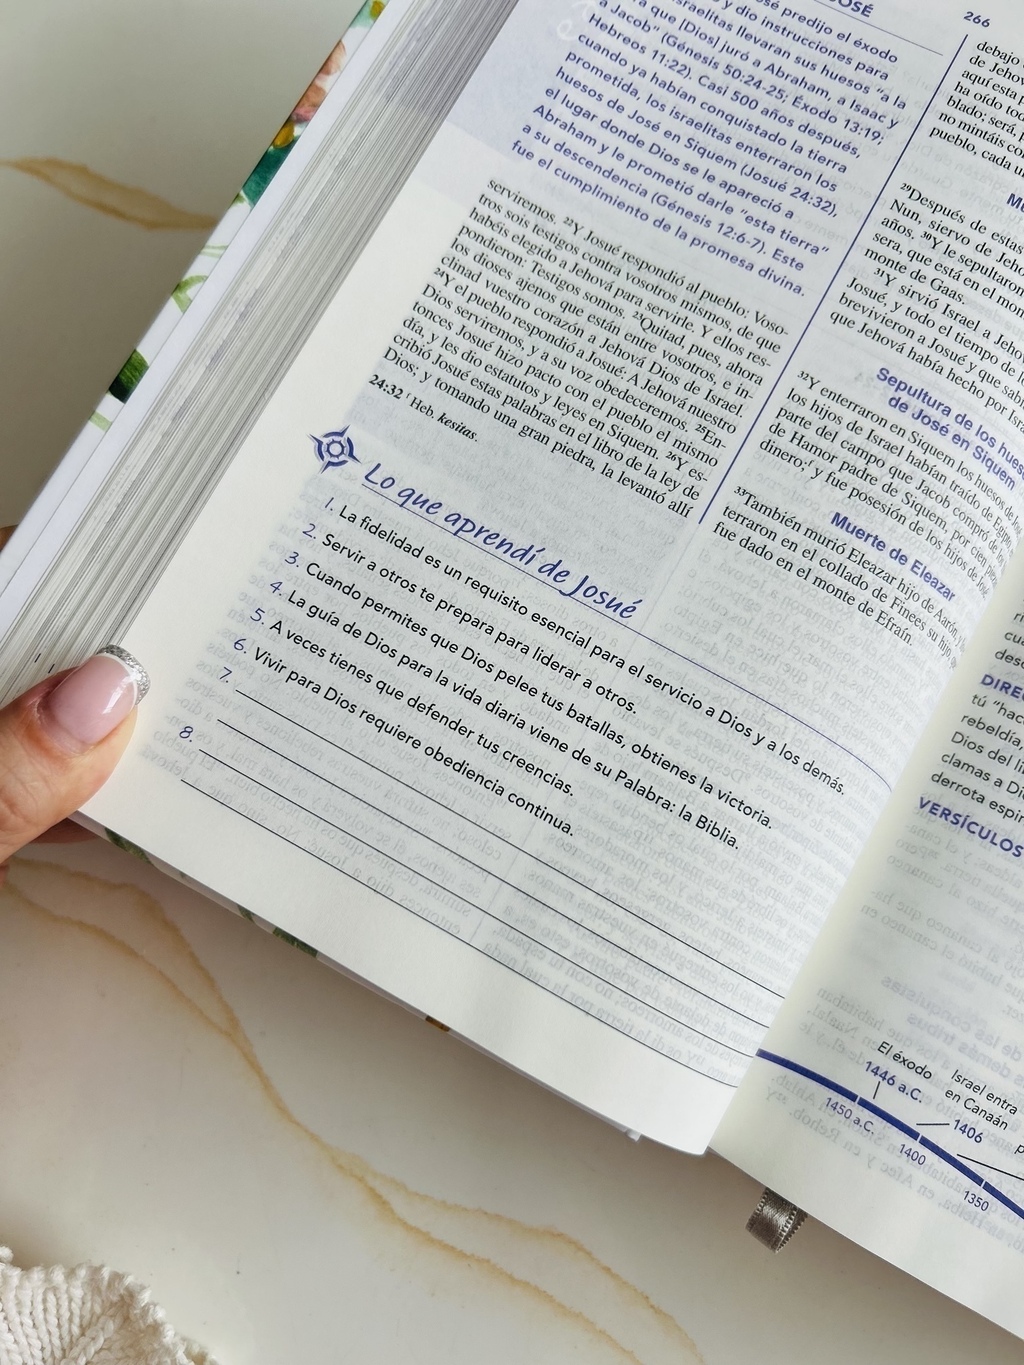 OSÉ
266
sé predijo el éxodo
y dio instrucciones para
israelitas llevaran sus huesos "a la
ra que [Dios] juró a Abraham, a Isaac y
a Jacob" (Génesis 50:24-25; Éxodo 13:19;
Hebreos 11:22). Casi 500 años después,
cuando ya habían conquistado la tierra
prometida, los israelitas enterraron los
huesos de José en Siquem (Josué 24:32),
el lugar donde Dios se le apareció a
Abraham y le prometió darle "esta tierra"
a su descendencia (Génesis 12:6-7). Este
fue el cumplimiento de la promesa divina.
serviremos. 22Y Josué respondió al pueblo: Voso-
tros sois testigos contra vosotros mismos, de que
habéis elegido a Jehová para servirle. Y ellos res-
pondieron: Testigos somos. 23Quitad, pues, ahora
los dioses ajenos que están entre vosotros, e in-
clinad vuestro corazón a Jehová Dios de Israel.
24Y el pueblo respondió a Josué: A Jehová nuestro
Dios serviremos, y a su voz obedeceremos. 25En-
tonces Josué hizo pacto con el pueblo el mismo
día, y les dio estatutos y leyes en Siquem. 26Y es-
cribió Josué estas palabras en el libro de la ley de
Dios; y tomando una gran piedra, la levantó allí
24:32 f Heb. kesitas.
debajo
de Jehov
aquí esta p
ha oído tod
blado; será, p
no mintáis co
pueblo, cada u
Mu
29Después de estas
Nun, siervo de Jeho
años. 30Y le sepultaron
sera, que está en el mon
monte de Gaas.
31Y sirvió Israel a Jeho
Josué, y todo el tiempo de l
brevivieron a Josué y que sabí
que Jehová había hecho por Isra
Sepultura de los hues
de José en Siquem
32Y enterraron en Siquem los huesos de Jos
los hijos de Israel habían traído de Egipto
parte del campo que Jacob compró de los
de Hamor padre de Siquem, por cien piez
dinero;f y fue posesión de los hijos de José
Muerte de Eleazar
33También murió Eleazar hijo de Aarón,
terraron en el collado de Finees su hijo,
fue dado en el monte de Efraín.
Lo que aprendí de Josué
1. La fidelidad es un requisito esencial para el servicio a Dios y a los demás.
2. Servir a otros te prepara para liderar a otros.
3. Cuando permites que Dios pelee tus batallas, obtienes la victoria.
4. La guía de Dios para la vida diaria viene de su Palabra: la Biblia.
5. A veces tienes que defender tus creencias.
6. Vivir para Dios requiere obediencia continua.
7.
8.
DIRE
tú "hac
rebeldía,
Dios del li
clamas a Di
derrota espir
VERSÍCULOS
El éxodo
1446 a.C.
Israel entra
en Canaán
1406
1450 a.C.
1400
1350